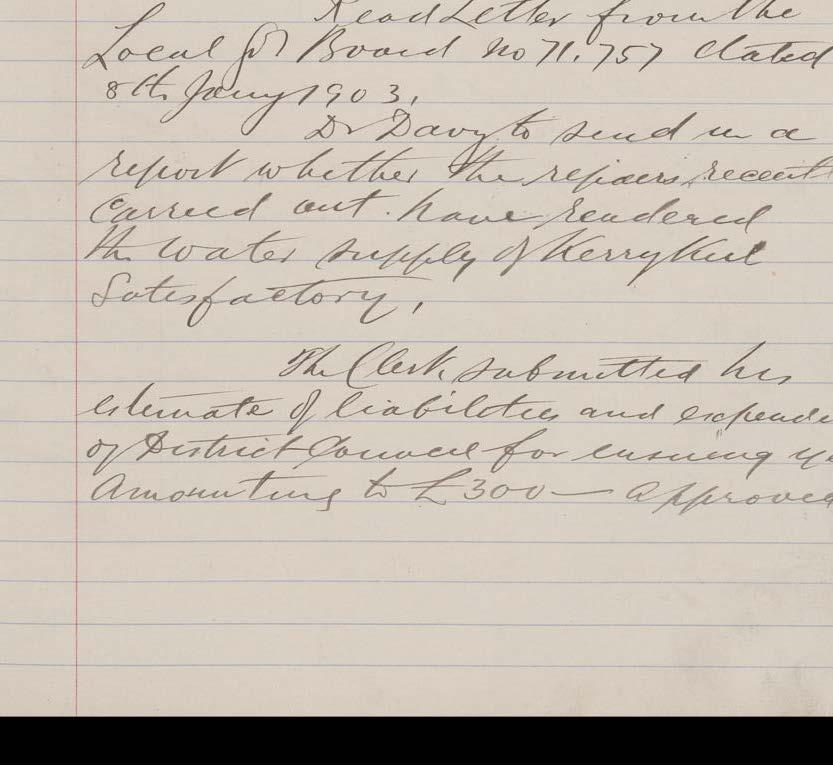 Read Letter from the
Local Gov Board no 71.757 dated
8th Jany 1903,
Dr Davy to send in a
report whether the repairs recent
carried out. have rendered
the water supply of Kerrykeel
Satisfactory,
The Clerk submitted his
estimate of liabilities and expendi
of District Council for ensuing ye
Amounting to £300 — approved